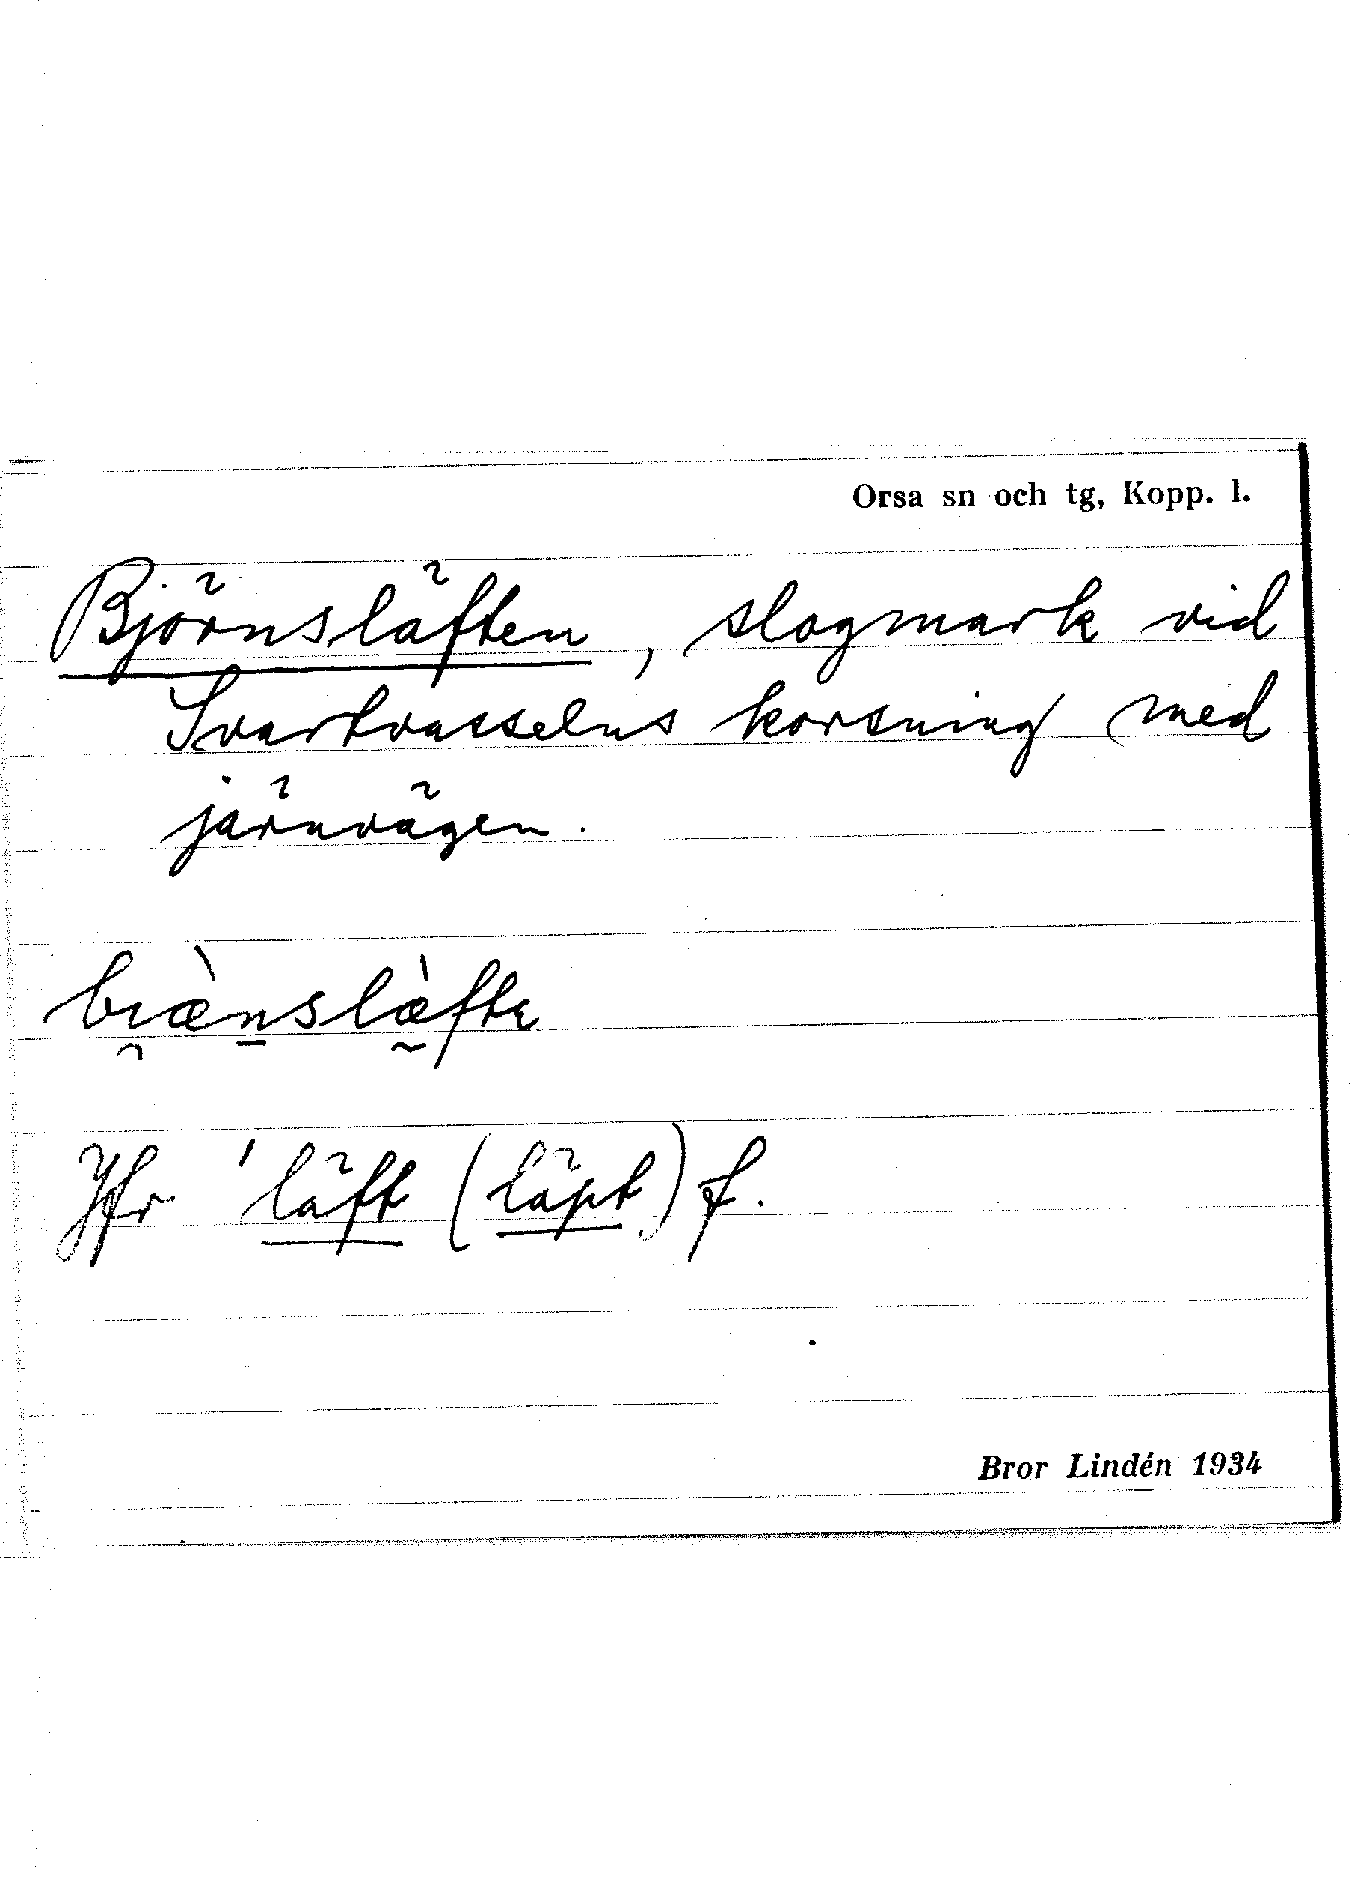 Orsa sn och tg, Kopp. l.
Björnsläften, slogmark vid
Svartvasselns korsning med
järnvägen.
Jfr 'läft (läpt) f.
Bror Lindén 1934